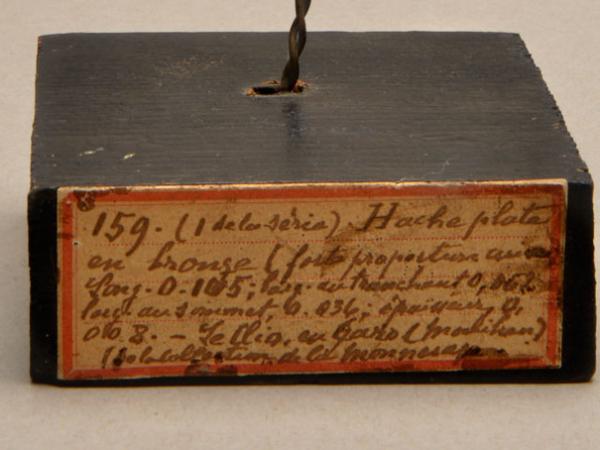 159. (1 de la série). Hache plate
en bronze (forte proportion
Long. 0.105; larg. au tranchant 0,062
larg. au sommet, 0.036; épaisseur, 0,
008. – en Baro (Morbihan)
(de la collection de la